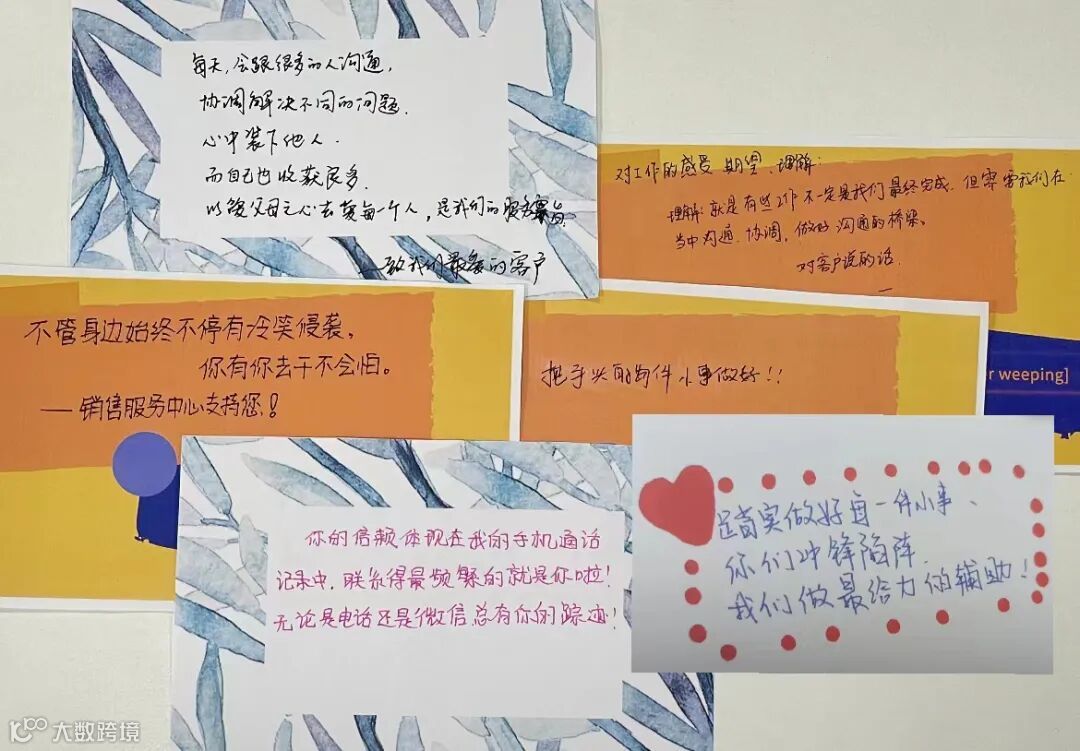 每天,会跟很多的人沟通,
协调解决不同的问题.
心中装下他人.
而自己也收获良多.
以后父母之心去爱每一个人,是我们的服务宗旨.
—致我们最爱的客户
对工作的感受 期望 理解:
理解:就是有些工作不一定是我们最终完成,但需要我们在
当中沟通.协调,做好沟通的桥梁。
对客户说的话.
不管身边始终不停有冷笑侵袭,
你有你去干不会怕。
—销售服务中心支持您!
把手头的每件小事做好!!
r weeping]
你的信赖体现在我的手机通话
记录中.联系得最频繁的就是你啦!
无论是电话还是微信总有你的踪迹!
踏实做好每一件小事、
你们冲锋陷阵.
我们做最给力的辅助!
大数跨境